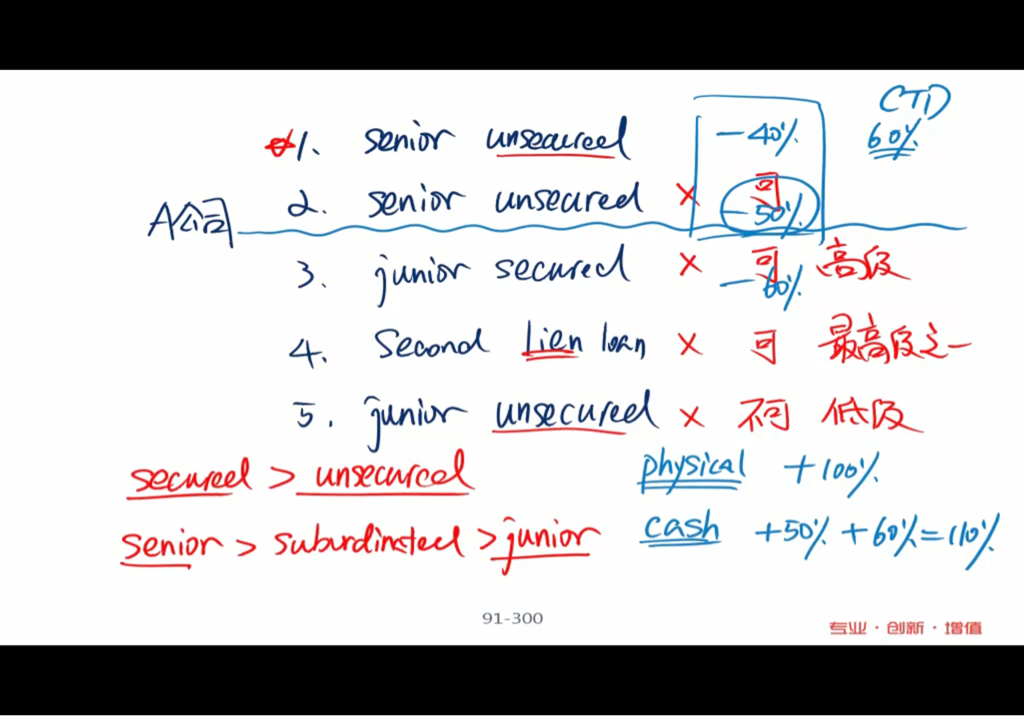 CTD
1. senior unsecured -40% 60%
2. senior unsecured × 可 -50%
A公司
3. junior secured × 可 -60% 高级
4. Second Lien loan × 可 最高级之一
5. junior unsecured × 不可 低级
secured > unsecured physical +100%
senior > subordinated > junior cash +50% +60% = 110%
91-300
专业·创新·增值